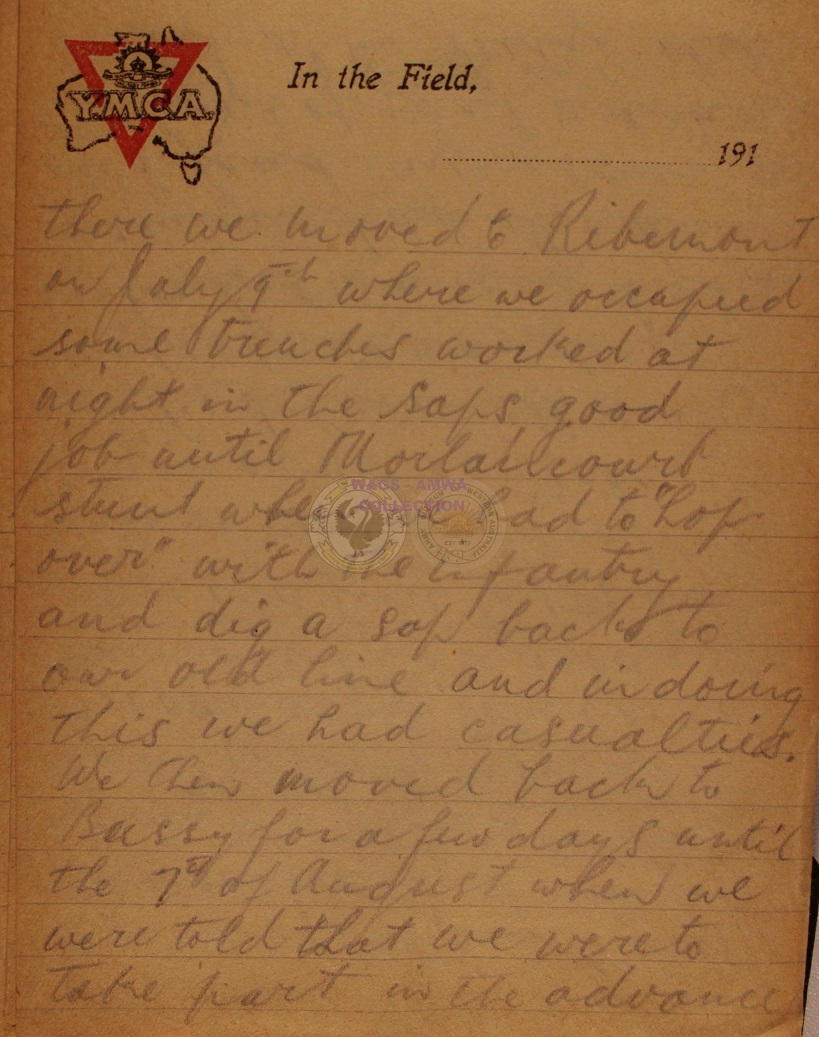 Y.M.C.A.
In the Field,
191
there we moved to Ribemont
on July 9th where we occupied
some trenches worked at
night in the saps good
job until Morlancourt
stunt when we had to "hop
over" with the infantry
and dig a sap back to
our old line and in doing
this we had casualties.
We then moved back to
Bussy for a few days until
the 7th of August when we
were told that we were to
take part in the advance
WAGS - AMWA
COLLECTION